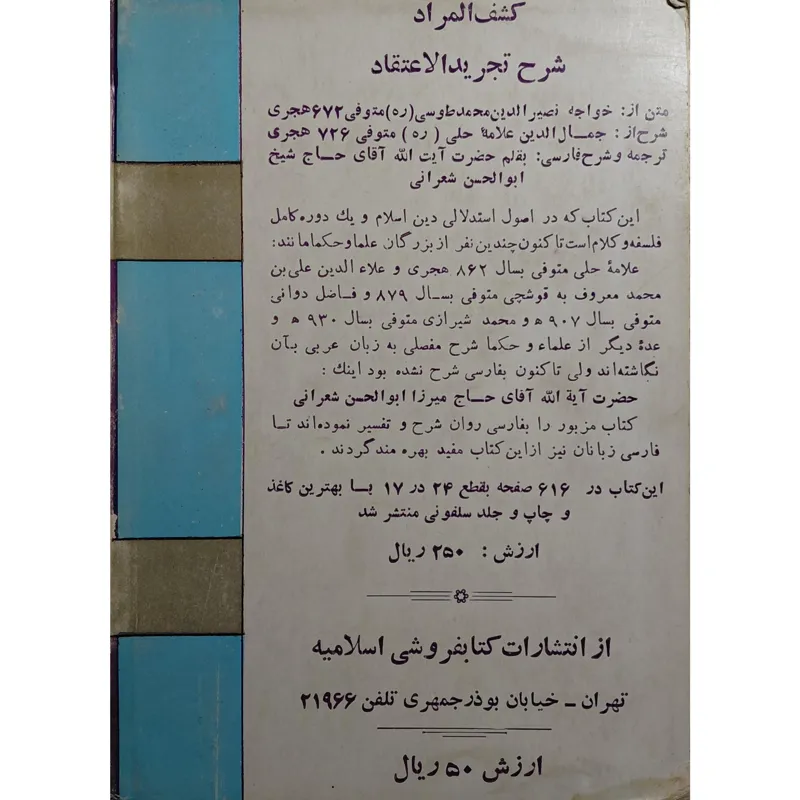 کشف‌المراد
شرح تجریدالاعتقاد
متن از: خواجه نصیرالدین‌محمدطوسی(ره)متوفی ۶۷۲هجری
شرح‌از: جمـال‌الدین علامهٔ حلی (ره) متوفی ۷۲۶ هجری
ترجمه وشرح‌فارسی: بقلم حضرت آیت الله آقای حـاج شیخ
ابوالحسن شعرانی
این کتاب که در اصول استدلالی دین اسلام و یك دوره‌کامل
فلسفه‌وکلام‌است‌تاکنون‌چندین‌نفر از‌بزرگان علماوحکمامانند:
علامهٔ حلی متوفی بسال ۸۶۲ هجری و علاء الدین علی‌بن
محمد معروف به قوشچی متوفی بسـال ۸۷۹ و فـاضل دوانی
متوفی بسال ۹۰۷ ه‍ و محمد شیرازی متوفی بسال ۹۳۰ ه‍ و
عدهٔ دیگر از علماء و حکما شرح مفصلی به زبان عربی بـآن
نگاشته‌اند ولی تاکنون بفارسی شرح نشده بود اینك :
حضرت آیة الله آقای حـاج میرزا ابوالحسن شعرانی
کتاب مزبور را بفارسی روان شرح و تفسیر نموده‌اند تـا
فارسی زبانان نیز ازاین کتاب مفید بهره مندگردند .
این‌کتاب در ۶۱۶ صفحه بقطع ۲۴ در ۱۷ بـا بهترین کاغذ
و چاپ و جلد سلفونی منتشر شد
ارزش : ۲۵۰ ریال
از انتشارات کتابفروشی اسلامیه
تهران ـ خیابان بوذرجمهری تلفن ۲۱۹۶۶
ارزش ۵۰ ریال